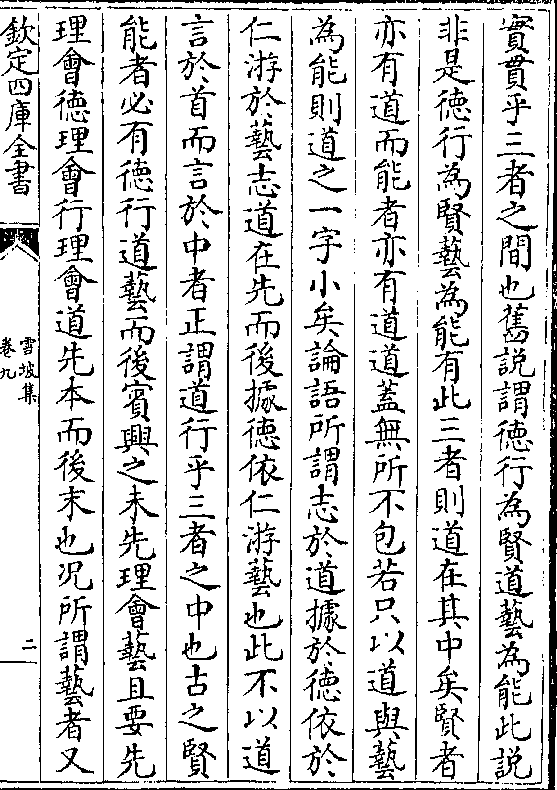 實貫乎三者之間也舊說謂德行為賢道藝為能此説
非是德行為賢藝為能有此三者則道在其中矣賢者
亦有道而能者亦有道道蓋無所不包若只以道與藝
為能則道之一字小矣論語所謂志於道據於德依於
仁游於藝志道在先而後據德依仁游藝也此不以道
言於首而言於中者正謂道行乎三者之中也古之賢
能者必有德行道藝而後賓興之未先理會藝且要先
理會德理會行理會道先本而後末也况所謂藝者又
欽定四庫全書
雪坡集
卷九
二